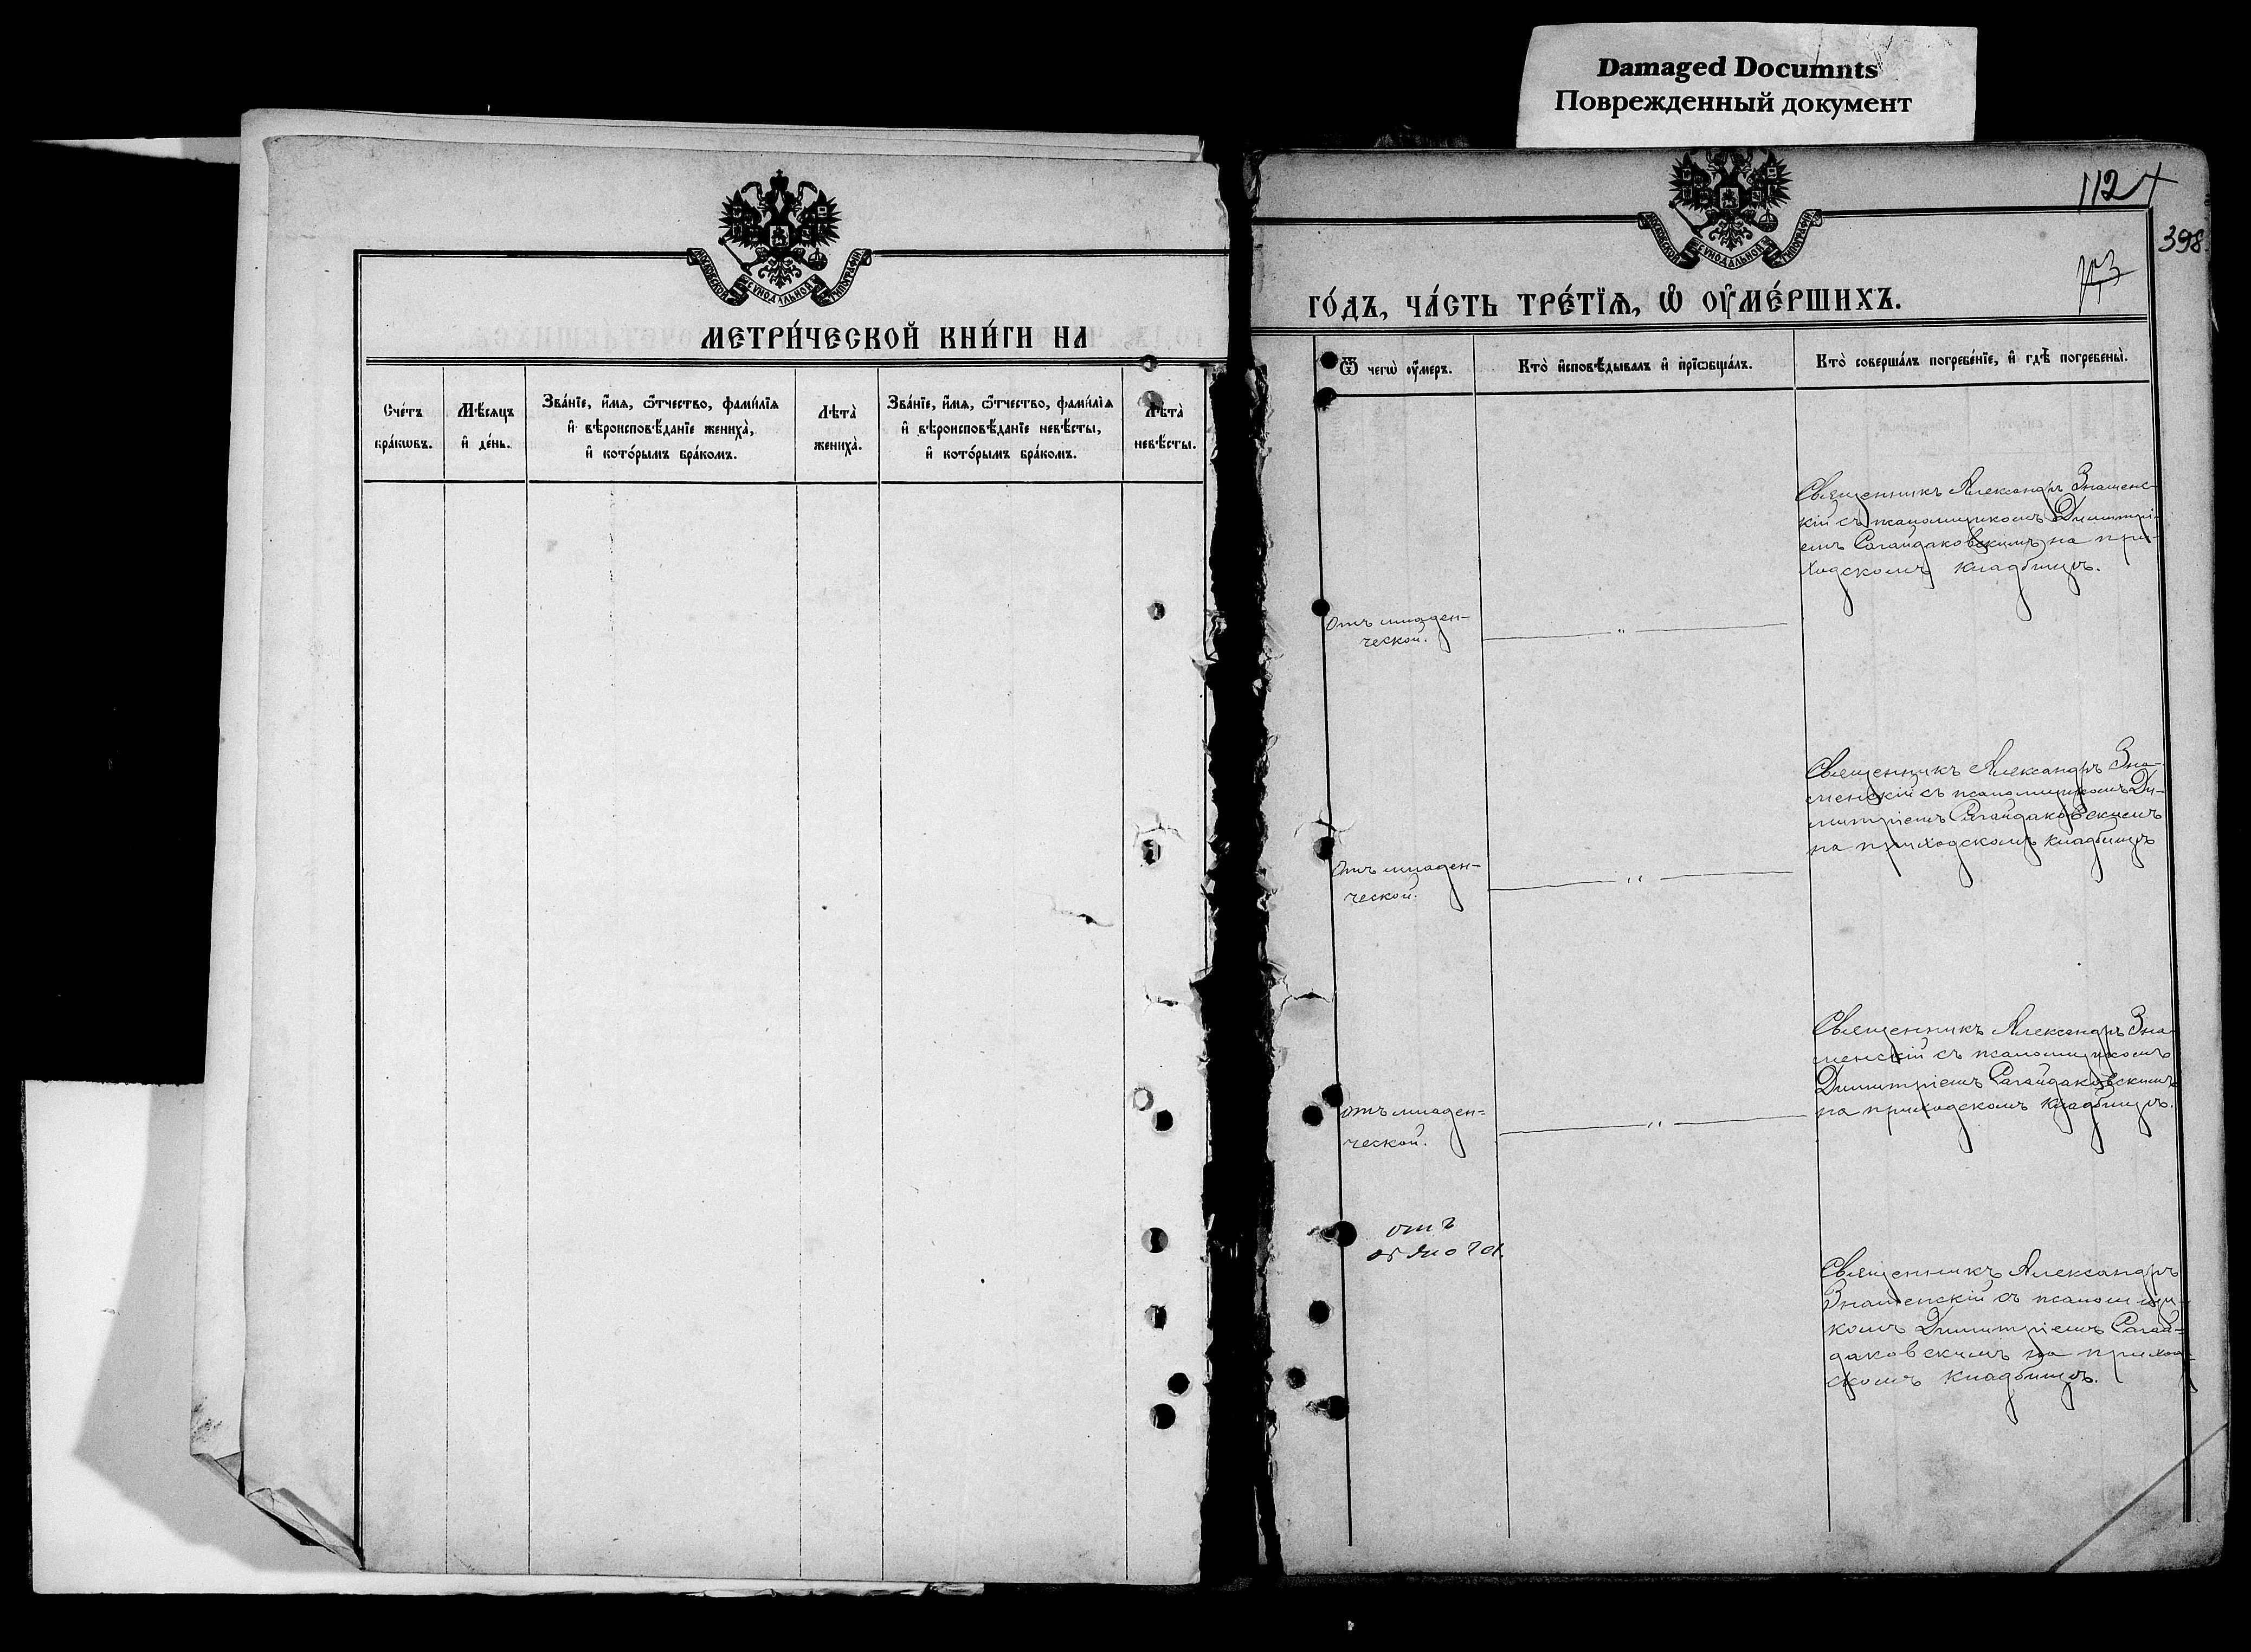 Damaged Documnts
Поврежденный документ
МОСКОВСКОЙ СѴНОДАЛЬНОЙ ТИПОГРАФІИ
МЕТРИ́ЧЕСКОЙ КНИ́ГИ НА
Сче́тъ бра́кѡвъ.
Мѣ́сяцъ и҆ де́нь.
Зва́нїе, и҆́мѧ, ѻ҆́тчество, фами́лїѧ
и҆ вѣроисповѣ́данїе жениха̀,
и҆ кото́рымъ бра́комъ.
Лѣта̀ жениха̀.
Зва́нїе, и҆́мѧ, ѻ҆́тчество, фами́лїѧ
и҆ вѣроисповѣ́данїе невѣ́сты,
и҆ кото́рымъ бра́комъ.
Лѣта̀ невѣ́сты.
МОСКОВСКОЙ СѴНОДАЛЬНОЙ ТИПОГРАФІИ
112
398
ГО́ДЪ, ЧА́СТЬ ТРЕ́ТЇѦ, Ѡ҆ ОУ҆МЕ́РШИХЪ.
Ѿ чегѡ̀ оу҆́меръ.
Кто̀ и҆сповѣ́дывалъ и҆ прїѡбща́лъ.
Кто̀ соверша́лъ погребе́нїе, и҆ гдѣ̀ погребены̀.
Священникъ Александръ Знаменс-
кій съ псаломщикомъ Димитрі-
емъ Сагайдаковскимъ на при-
ходскомъ кладбищѣ.
Отъ младен-
ческой.
Священникъ Александръ Зна-
менскій съ псаломщикомъ Ди-
митріемъ Сагайдаковскимъ
на приходскомъ кладбищѣ
Отъ младен-
ческой.
Священникъ Александръ Зна-
менскій съ псаломщикомъ
Димитріемъ Сагайдаковскимъ
на приходскомъ кладбищѣ.
Отъ младен-
ческой.
отъ
Священникъ Александръ
Знаменскій съ псаломщи-
комъ Димитріемъ Сагай-
даковскимъ на приход-
скомъ кладбищѣ.